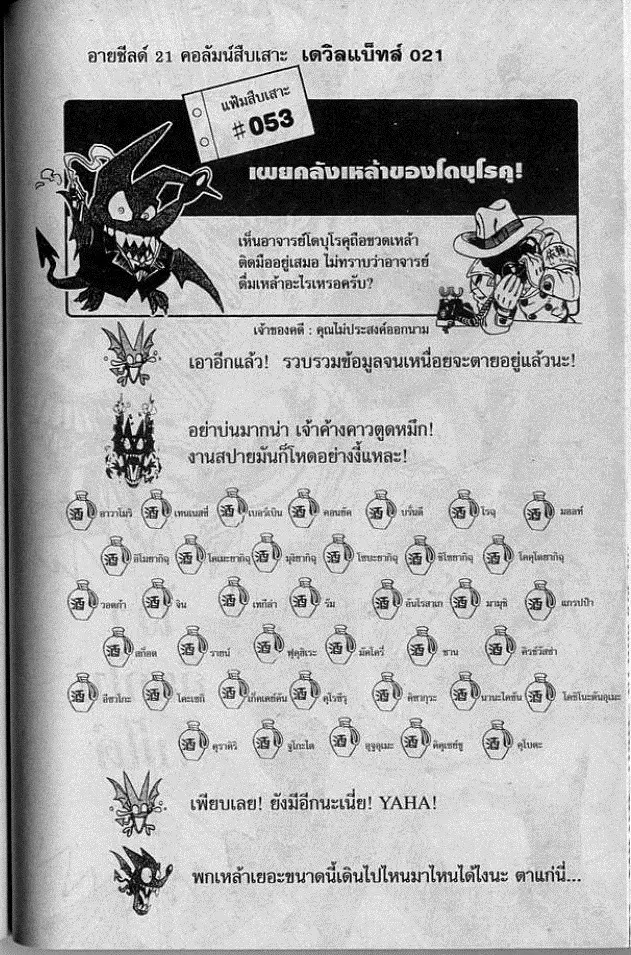 อายชีลด์ 21 คอลัมน์สืบเสาะ เดวิลแบ็ทส์ 021
แฟ้มสืบเสาะ
#053
เผยคลังเหล้าของโดบุโรคุ!
เห็นอาจารย์โดบุโรคุถือขวดเหล้า
ติดมืออยู่เสมอ ไม่ทราบว่าอาจารย์
ดื่มเหล้าอะไรเหรอครับ?
เจ้าของคดี : คุณไม่ประสงค์ออกนาม
เอาอีกแล้ว! รวบรวมข้อมูลจนเหนื่อยจะตายอยู่แล้วนะ!
อย่าบ่นมากน่า เจ้าค้างคาวตูดหมึก!
งานสปายมันก็โหดอย่างงี้แหละ!
酒 อาวาโมริ 酒 เทนเนสซี่ 酒 เบอร์เบิน 酒 คอนยัค 酒 บรั่นดี 酒 โรคุ 酒 มอลท์
酒 อิโมยากิฉุ 酒 โคเมะยากิฉุ 酒 มุงิยากิฉุ 酒 โซบะยากิฉุ 酒 ชิโซยากิฉุ 酒 โคคุโตยากิฉุ
酒 วอดก้า 酒 จิน 酒 เทกีล่า 酒 รัม 酒 อันโรสาเก 酒 มามุชิ 酒 แกรปป้า
酒 สก็อต 酒 รายน์ 酒 ฟุคุฮิเระ 酒 มัคโครี่ 酒 ซาน 酒 คิรช์วัสซ่า
酒 อีซาโกะ 酒 โคะเซกิ 酒 เก็คเคย์คัน 酒 คุโรชิรุ 酒 คิซากุระ 酒 นานะโคซัน 酒 โคชิโนะคันอุเมะ
酒 คุราคิริ 酒 จูโกะโต 酒 อุจุอุเมะ 酒 คิคุเซย์ชู 酒 คุโบตะ
เพียบเลย! ยังมีอีกนะเนี่ย! YAHA!
พกเหล้าเยอะขนาดนี้เดินไปไหนมาไหนได้ไงนะ ตาแก่นี่...